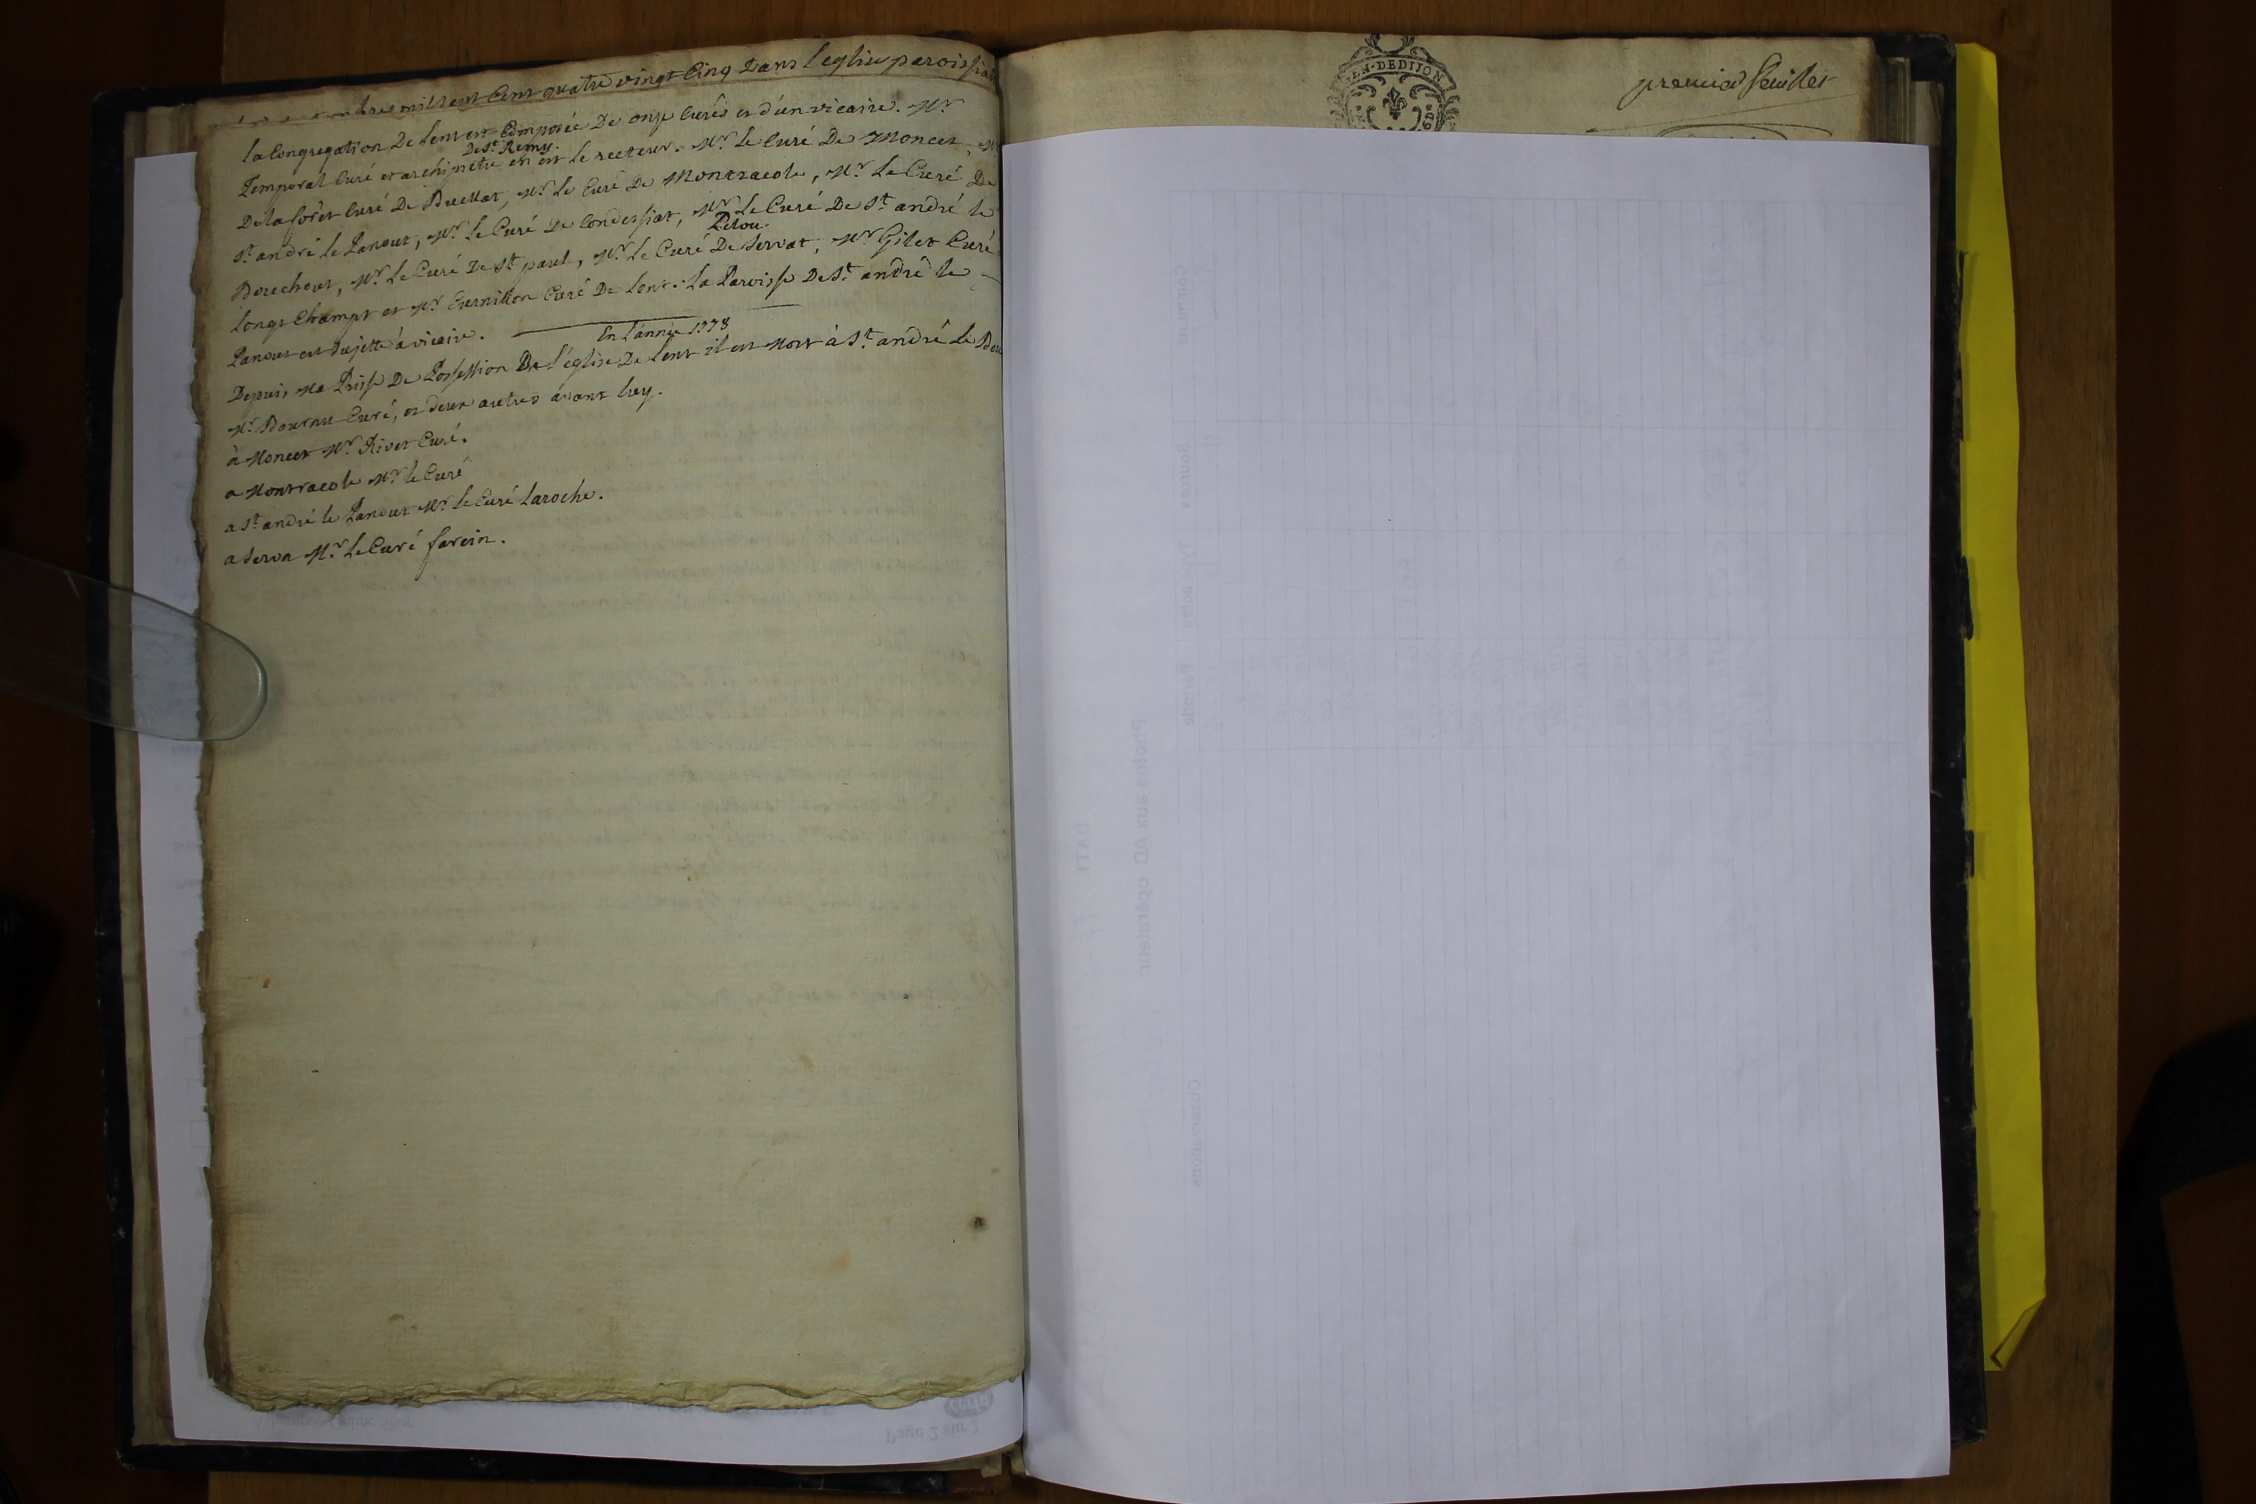 mil sept Cent quatre vingt Cinq Dans l'eglise paroissial
la Congregation De lent est Composée De onze Curés et d'un vicaire. Mr
De St. Remy.
Temporal Curé et archiprêtre en est le recteur. Mr. le Curé De Moncet, Mr
De la forêt Curé De Buellat, Mr. le Curé De Montracole, Mr. Le Curé De
St. andré le Panoux, Mr. le Curé De Condessiat, Mr. Le Curé De St. andré le
Pelou.
Bouchoux, Mr. Le Curé De St. paul, Mr. le Curé De Servat, Mr. Gilet Curé
longs Champs et Mr. Curnillon Curé De lent. La Paroisse De St. andré le
Panoux est Sujette à vicaire.
En l'année 1778
Depuis Ma Prise De Possession De l'église De lent il est Mort à St. andré Le Bou
Mr. Bournu Curé, et deux autres avant luy.
à Moncet Mr. Rivet Curé.
a Montracole Mr. le Curé
a St. andré le Panoux Mr. le Curé Laroche.
a Serva Mr. Le Curé farcin.
GEN-DEDIJON
premier feuillet